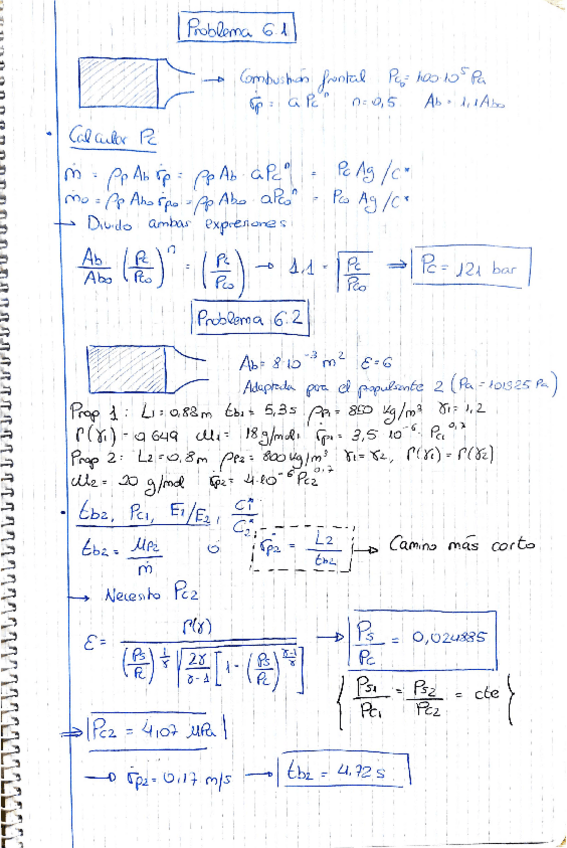 Problema 6.1
→ Combustión frontal Pc₀ = 100·10⁵ Pa
ṙp = a Pcⁿ n = 0,5. Ab = 1,1 Ab₀
• Calcular Pc
ṁ = ρp Ab ṙp = ρp Ab · a Pcⁿ = Pc Ag / c*
ṁ₀ = ρp Ab₀ ṙp₀ = ρp Ab₀ · a Pc₀ⁿ = Pc₀ Ag / c*
→ Divido ambas expresiones
Ab/Ab₀ (Pc/Pc₀)ⁿ = (Pc/Pc₀) → 1,1 = √(Pc/Pc₀) ⇒ Pc = 121 bar
Problema 6.2
Ab = 8·10⁻³ m² ε = 6
Adaptada para el propulsante 2 (Pa = 101325 Pa)
Prop 1: L₁ = 0,88 m tb₁ = 5,3 s ρp₁ = 850 kg/m³ γ₁ = 1,2
Γ(γ₁) = 0,649 M₁ = 18 g/mol, ṙp₁ = 3,5·10⁻⁶ · Pc₁^0,7
Prop 2: L₂ = 0,8 m ρp₂ = 800 kg/m³ γ₁ = γ₂, Γ(γ₁) = Γ(γ₂)
M₂ = 20 g/mol ṙp₂ = 4·10⁻⁶ Pc₂^0,7
• tb₂, Pc₁, E₁/E₂, C₁*/C₂*
tb₂ = Mp₂/ṁ ó ṙp₂ = L₂/tb₂ → Camino más corto
→ Necesito Pc₂
ε = Γ(γ) / ((Ps/Pc)^(1/γ) √(2γ/(γ-1) [1 - (Ps/Pc)^((γ-1)/γ)])) → Ps/Pc = 0,024885
{Ps₁/Pc₁ = Ps₂/Pc₂ = cte}
⇒ Pc₂ = 4,07 MPa
→ ṙp₂ = 0,17 m/s → tb₂ = 4.72 s